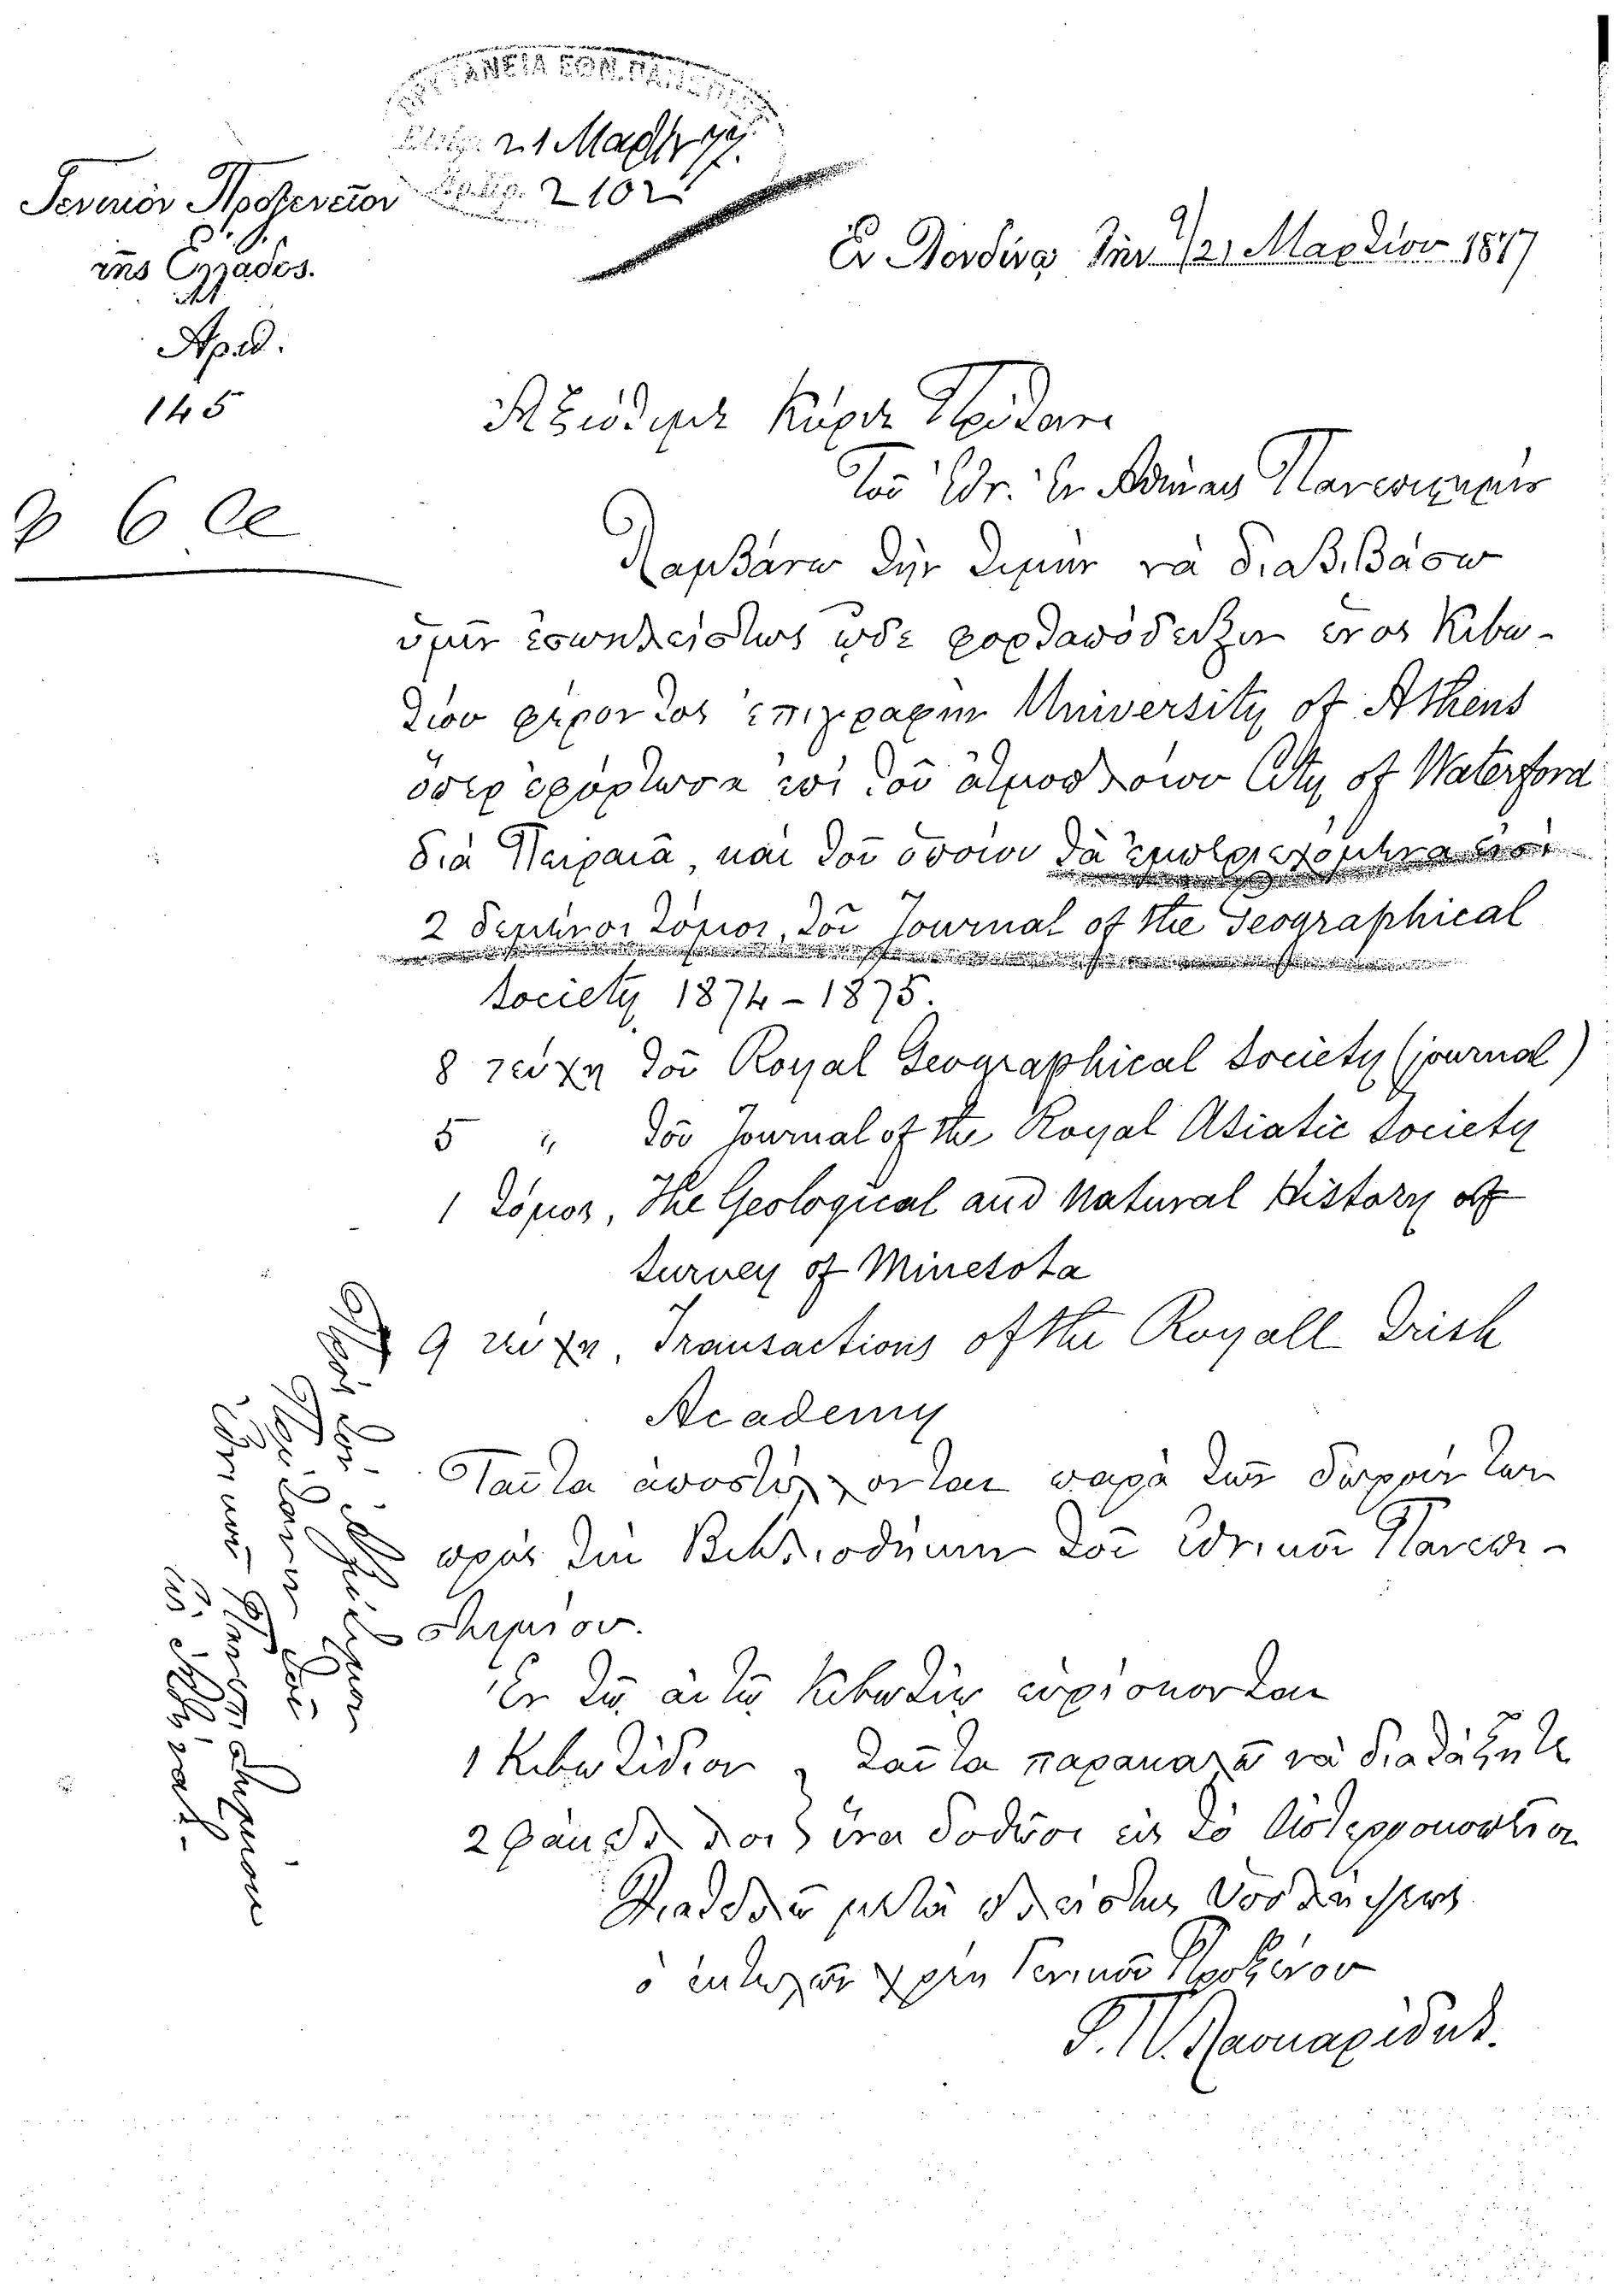 21 Μαρτ 77.
2102
Γενικόν Προξενεῖον
τῆς Ἑλλάδος.
Ἀριθ.
145
Ἐν Λονδίνῳ τὴν 9/21 Μαρτίου 1877
Ἀξιότιμε Κύριε Πρύτανι
Τοῦ Ἐθν. ἐν Ἀθήναις Πανεπιστημίου
Λαμβάνω τὴν τιμὴν νὰ διαβιβάσω
ὑμῖν ἐσωκλείστως ὧδε φορτωτόδειξιν ἑνὸς κιβω-
τίου φέροντος ἐπιγραφὴν University of Athens
ὅπερ ἐφόρτωσα ἐπὶ τοῦ ἀτμοπλοίου City of Waterford
διὰ Πειραιᾶ, καὶ τοῦ ὁποίου τὰ ἐμπεριεχόμενα εἰσὶ
2 δεμένοι τόμοι, τοῦ Journal of the Geographical
Society 1874-1875.
8 τεύχη τοῦ Royal Geographical Society (journal)
5 " τοῦ Journal of the Royal Asiatic Society
1 τόμος, The Geological and Natural History of
Survey of Minesota
9 τεύχη, Transactions of the Royall Irish
Academy
Ταῦτα ἀποστέλλονται παρὰ τῶν δωρητῶν
πρὸς τὴν Βιβλιοθήκην τοῦ Ἐθνικοῦ Πανεπι-
στημίου.
Ἐν τῷ αὐτῷ κιβωτίῳ εὑρίσκονται
1 κιβωτίδιον } ταῦτα παρακαλῶ νὰ διατάξητε
2 φάκελλοι } ἵνα δοθῶσι εἰς τὸ Ἀστεροσκοπεῖον
Διατελῶ μετὰ πλείστης ὑπολήψεως
ὁ ἐκτελῶν χρέη Γενικοῦ Προξένου
Πρὸς τὸν Ἀξιότιμον
Πρύτανιν τοῦ
Ἐθνικοῦ Πανεπιστημίου
εἰς Ἀθήνας.